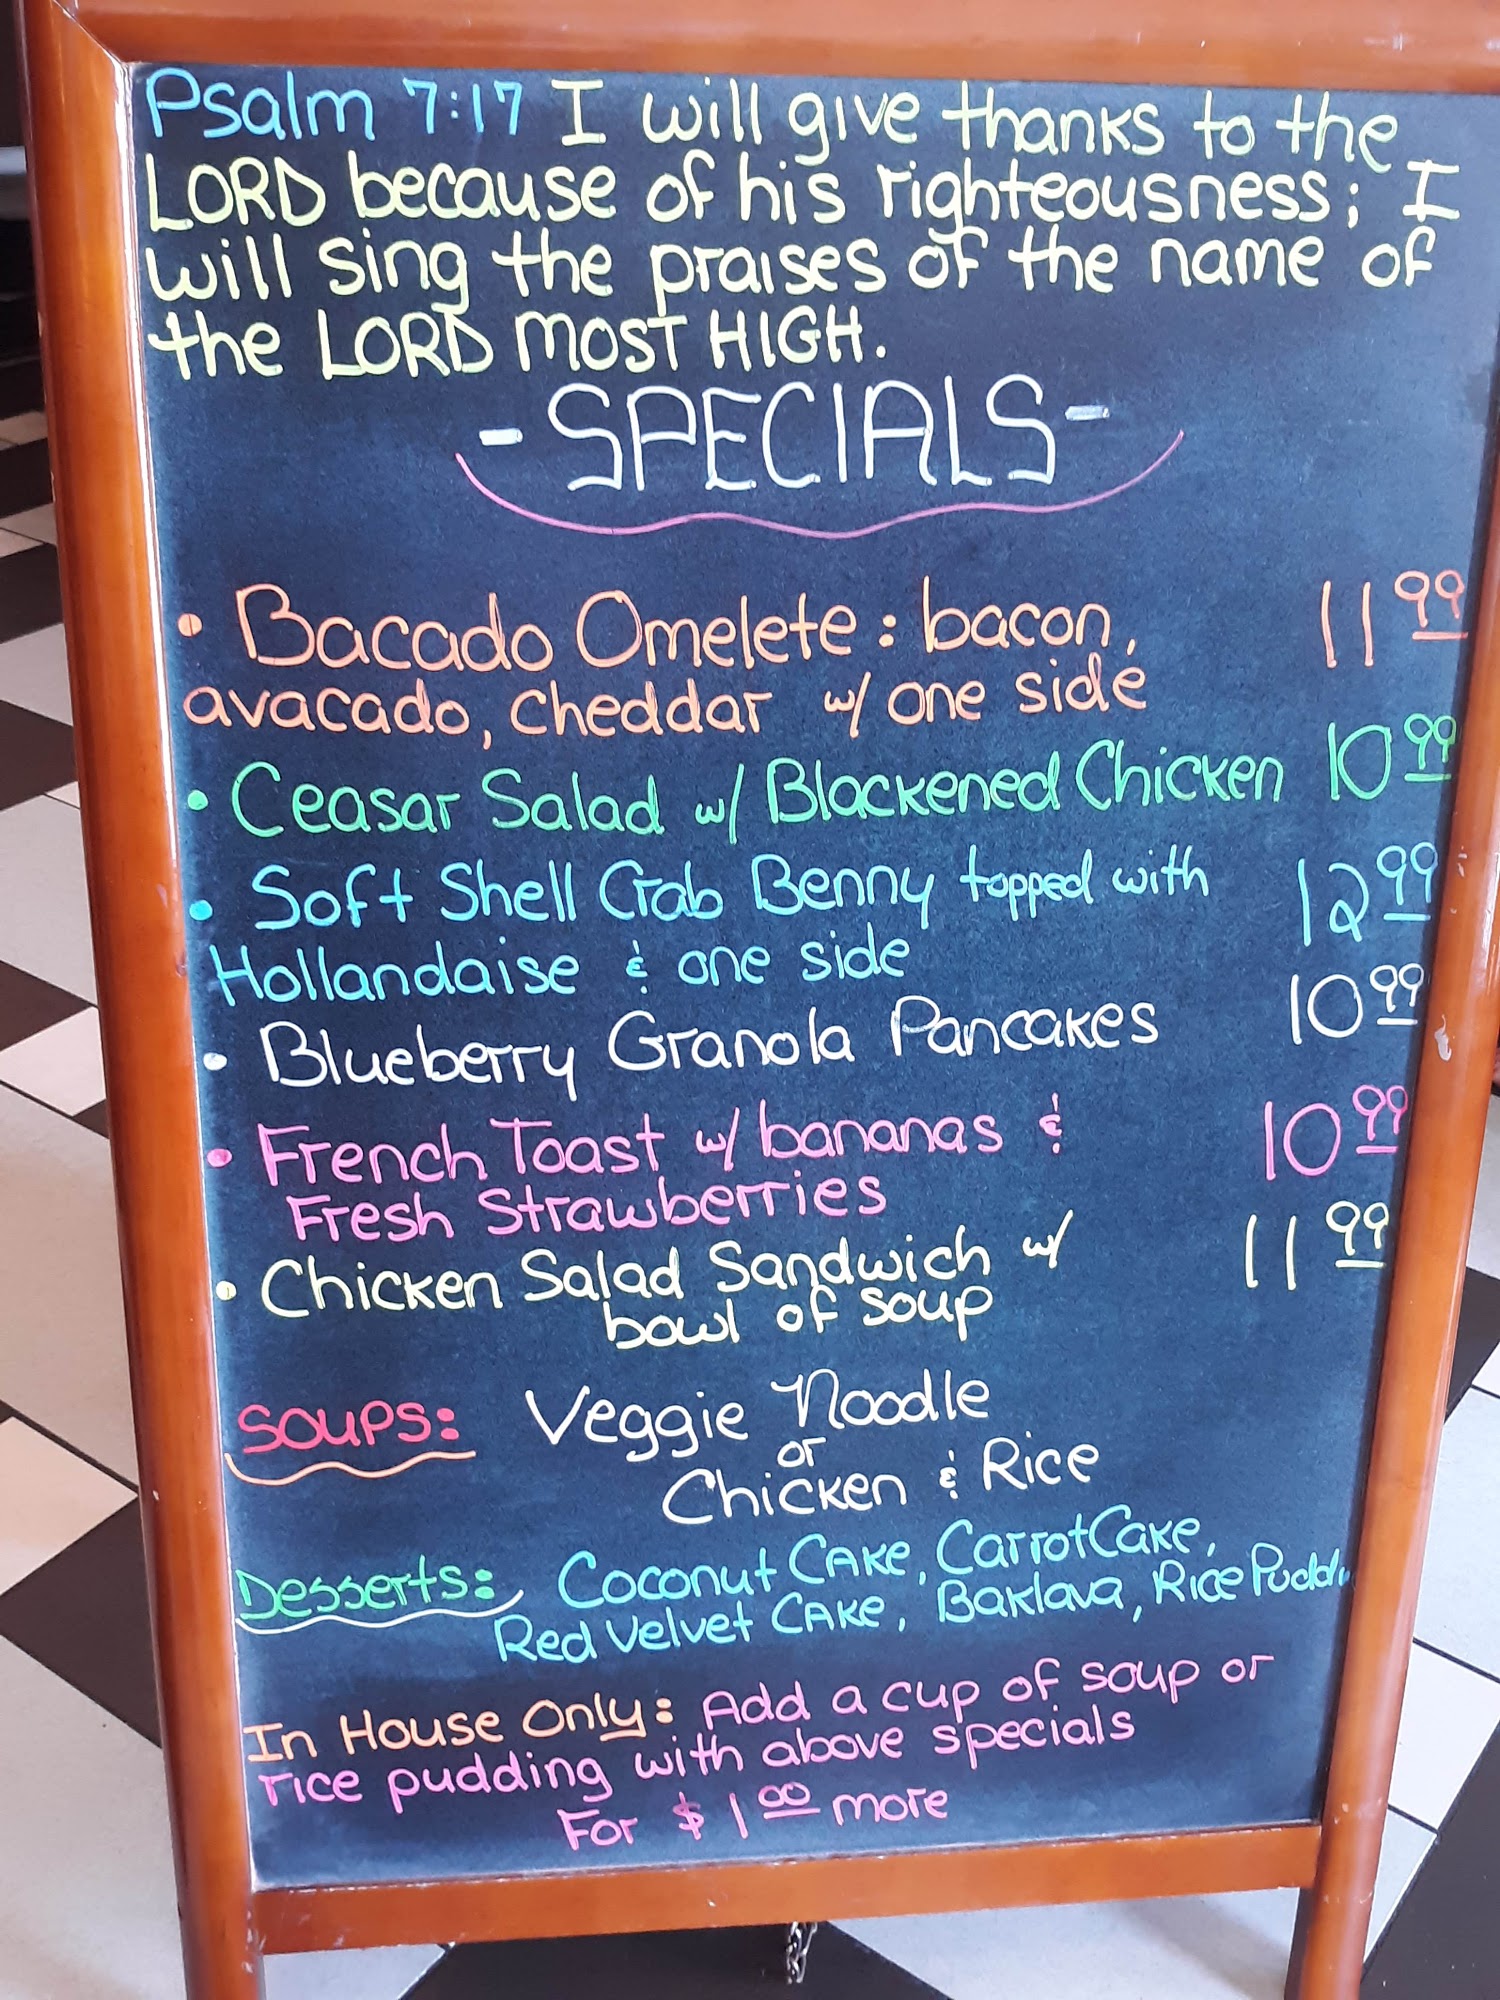 Psalm 7:17 I will give thanks to the
LORD because of his righteousness; I
will sing the praises of the name of
the LORD MOST HIGH.
-SPECIALS-
• Bacado Omelete: bacon, 11 99
avacado, cheddar w/ one side
• Ceasar Salad w/ Blackened Chicken 10 99
• Soft Shell Crab Benny topped with 12 99
Hollandaise & one side
• Blueberry Granola Pancakes 10 99
• French Toast w/ bananas & 10 99
Fresh Strawberries
• Chicken Salad Sandwich w/ 11 99
bowl of soup
SOUPS: Veggie Noodle
or
Chicken & Rice
Desserts: Coconut CAKE, Carrot Cake,
Red Velvet CAKE, Baklava, Rice Puddi
In House Only: Add a cup of soup or
rice pudding with above specials
For $1 00 more